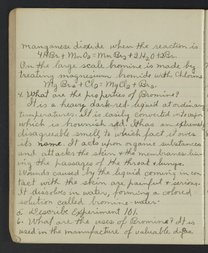 manganese dioxide when the reaction is
4HBr + MnO2 = MnBr2 + 2H2O + 2Br.
On the large scale bromine is made by
treating magnesium bromide with chlorine
MgBr2 + Cl2 = MgCl2 + Br2.
4. What are the properties of Bromine?
It is a heavy dark red liquid at ordinary
temperature. It is easily converted into vapor
which is brownish red. It has an extremely
disagreeable smell to which fact it owes
its name. It acts upon organic substances
and attacks the skin & the membranes lin-
ing the passages of the throat & lungs.
Wounds caused by the liquid coming in con-
tact with the skin are painful & serious.
It dissolves in water, forming a colored
solution called bromine-water.
5. Describe Experiment 161.
6. What are the uses of Bromine? It is
used in the manufacture of valuable dye